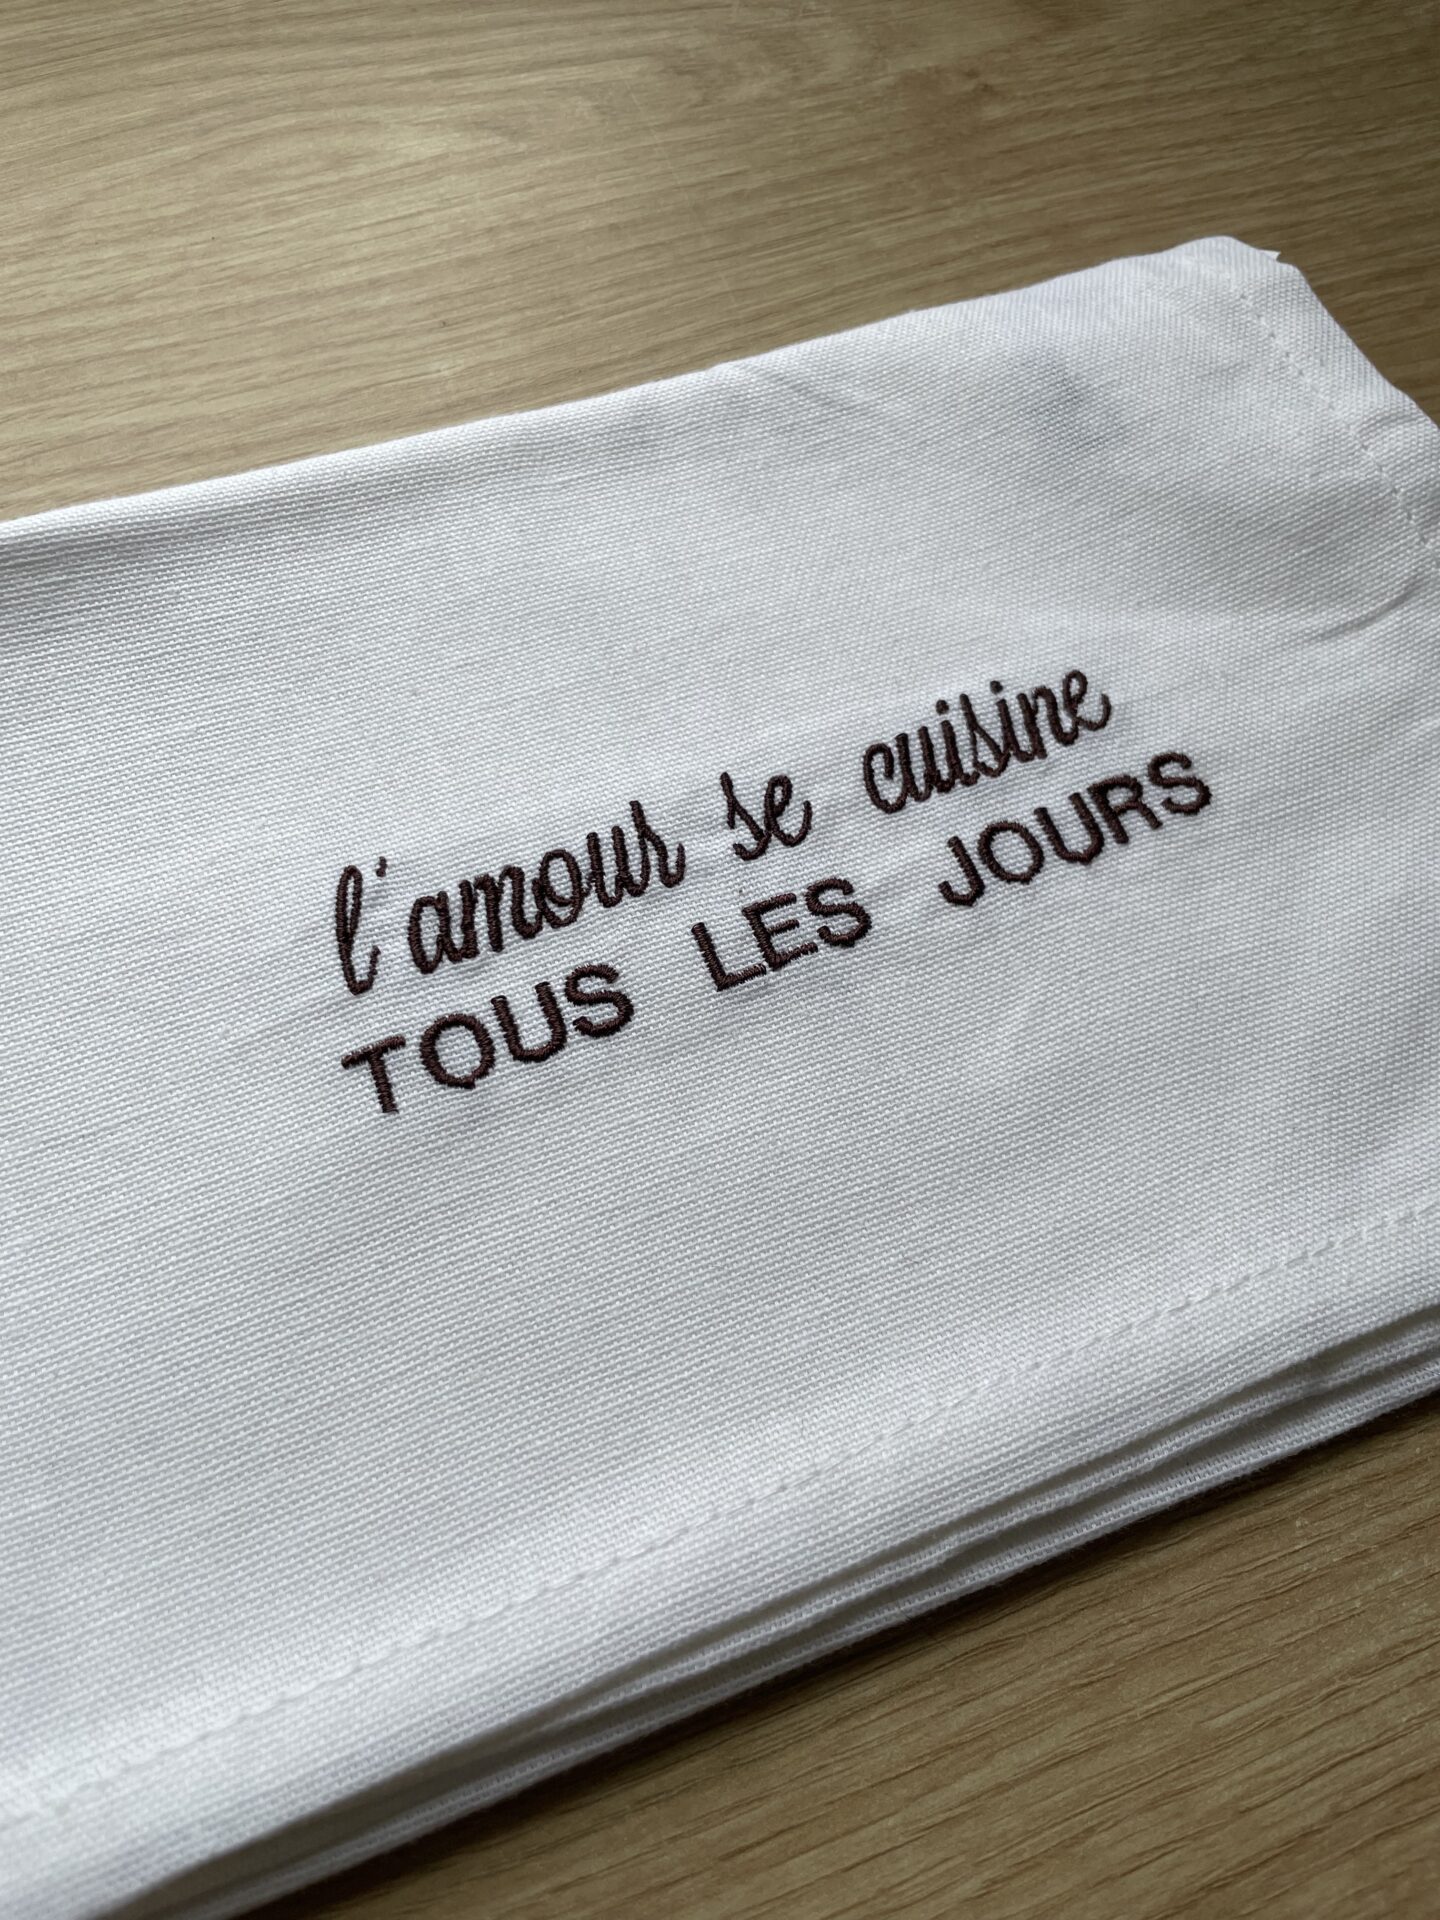 l'amour se cuisine
TOUS LES JOURS